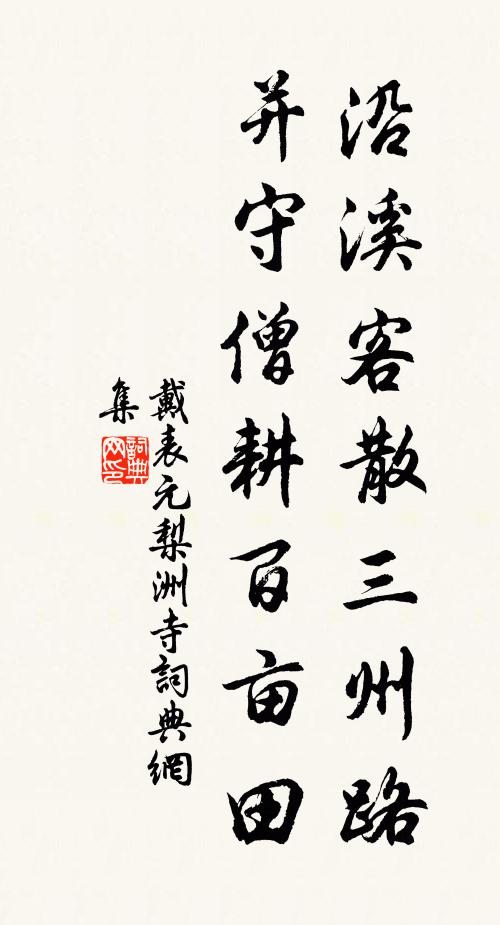 沿溪客散三州路
并守僧耕百亩田
戴表元梨洲寺詞典網
集
詞典
网印